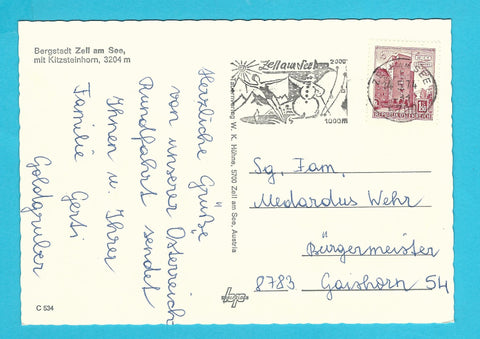 Bergstadt Zell am See,
mit Kitzsteinhorn, 3204 m
Herzliche Grüße
von unserer Österreich
Rundfahrt sendet
Ihnen u. Ihrer
Familie Gerti
Goldgruber
C 534
W. K. Hühne, 5700 Zell am See, Austria
Zell am See
2000
1000m
REPUBLIK ÖSTERREICH
Sg. Fam.
Medardus Wehr
Bürgermeister
8783 Gaishorn 54